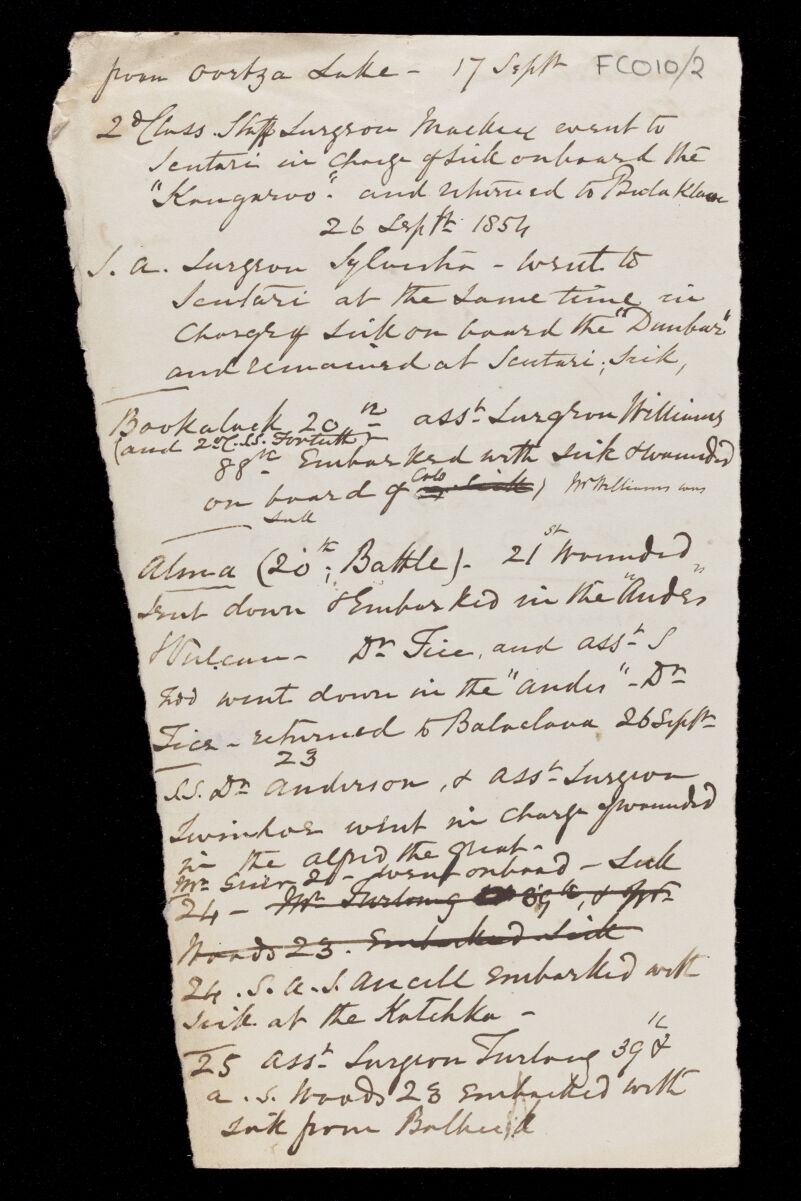 from Oortza Lake - 17 Septr FC010/2
2d Class Staff Surgeon Mackey went to
Scutari in Charge of sick onboard the
"Kangaroo". and returned to Balaklava
26 Septr 1854
S. A. Surgeon Sylvester - went to
Scutari at the same time in
Charge of sick on board the "Dunbar"
and remained at Scutari, sick,
20th asst Surgeon Williams
(and 2d C.S.S.
88th Embarked with sick & wounded
on board of Mr Williams was
sick
Alma (20th; Battle). 21st Wounded
sent down & Embarked in the "Andes"
& Vulcan - Dr Tice, and asst S
went down in the "Andes" - Dr
Tice - returned to Balaclava 26 Septr
23
S.S. Dr Anderson, & asst Surgeon
Swinhoe went in charge of wounded
in the Alfred the Great -
Mr 20 - went onboard - Sick
24 - Mr Furlong 39th, & Mr
Woods 23. Embarked sick
24. S. A. S. Ancell embarked with
sick at the Katchka -
25 asst Surgeon Furlong 39th &
a. S. Woods 23 embarked with
sick from